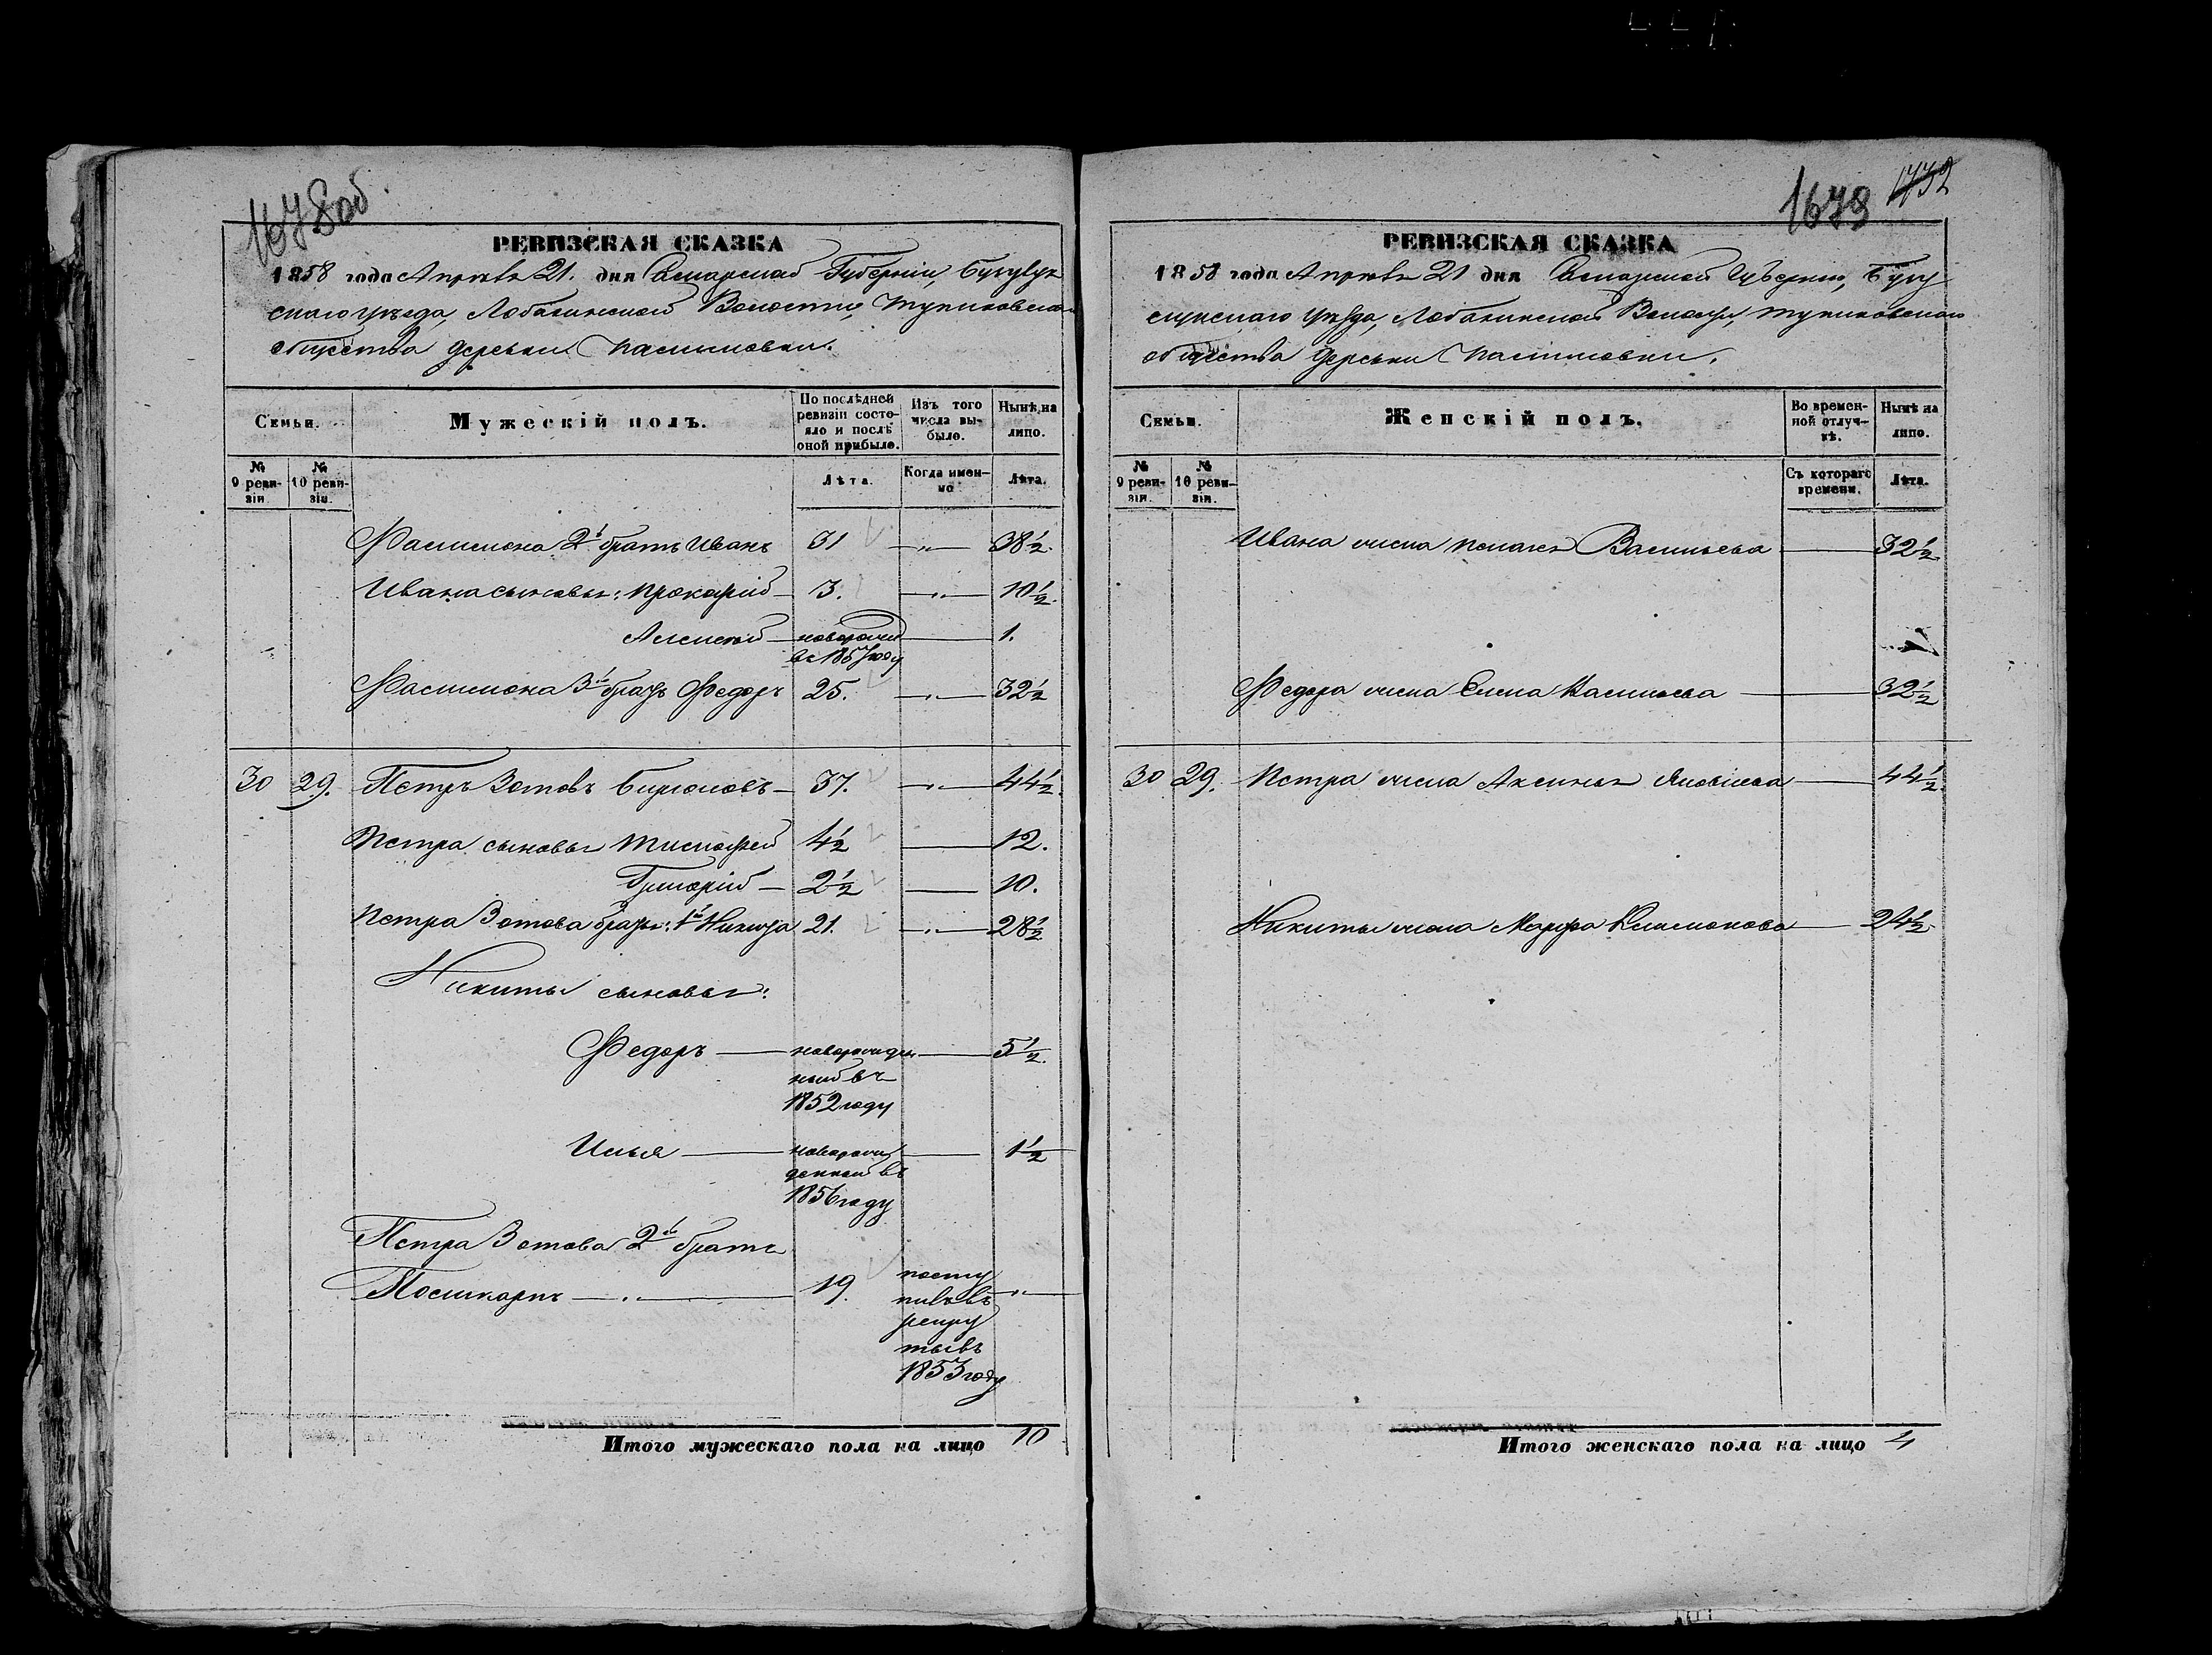 1678об.
РЕВИЗСКАЯ СКАЗКА
1858 года Апрѣля 21. дня Самарской Губерніи, Бугурус
скаго уѣзда, Лобазинской Волости,
общества деревни
Семьи.
Мужескій полъ.
По послѣдней ревизіи состояло и послѣ оной прибыло.
Изъ того числа выбыло.
Нынѣ на лицо.
№ 9 ревизіи.
№ 10 ревизіи.
Лѣта.
Когда именно
Лѣта.
2й братъ Иванъ 31 —"— 38½.
Ивана сыновья: Прокофій — 3. —"— 10½.
Алексей — новорожд — 1.
въ 1857 году
3й братъ Федоръ 25. —"— 32½
30 29. Петръ Зотовъ Бирюковъ — 37. —"— 44½.
Петра сыновья Тимофей 4½ — 12.
Григорій — 2½ — 10.
Петра Зотова братья: 1й Никита 21. —"— 28½
Никиты сыновья:
Федоръ — новорожден — 5½.
ный въ
1852 году
Илья — новорож — 1½
денный въ
1856 году
Петра Зотова 2й братъ
Поликарпъ —"— 19. посту —"—
пилъ въ
рекру
ты въ
1853 году
Итого мужескаго пола на лицо 10
1679 1732
РЕВИЗСКАЯ СКАЗКА
1858 года Апрѣля 21 дня Самарской Губерніи, Бугу
русскаго уѣзда, Лобазинской Волости,
общества деревни
Семьи.
Женскій полъ.
Во временной отлучкѣ.
Нынѣ на лицо.
№ 9 ревизіи.
№ 10 ревизіи.
Съ котораго времени.
Лѣта.
Ивана жена Васильева — 32½
Федора жена Елена Васильева — 32½
30 29. Петра жена Аксинья Яковлева — 44½.
Никиты жена Марфа — 24½
Итого женскаго пола на лицо 4